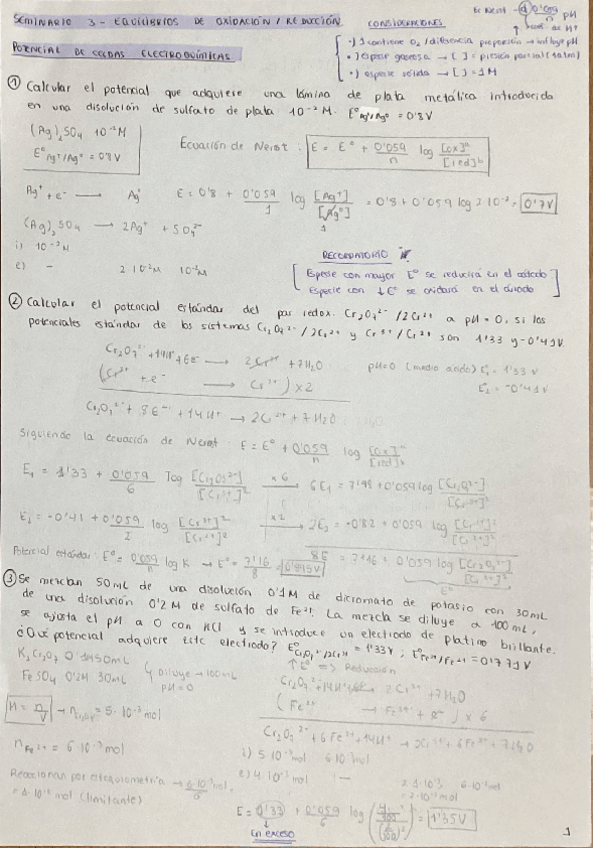 SEMINARIO 3 - EQUILIBRIOS DE OXIDACIÓN / REDUCCIÓN
CONSIDERACIONES
POTENCIAL DE CELDAS ELECTROQUÍMICAS
·) especie gaseosa → [ ] = presión parcial (1 atm)
·) especie sólida → [ ] = 1M
① Calcular el potencial que adquiere una lámina de plata metálica introducida
en una disolución de sulfato de plata 10⁻² M. E⁰ Ag⁺/Ag⁰ = 0'8V
(Ag)₂SO₄ 10⁻² M
E⁰ Ag⁺/Ag⁰ = 0'8 V
Ecuación de Nerst: E = E⁰ + 0'059/n log [ox]ᵃ/[red]ᵇ
Ag⁺ + e⁻ → Ag⁰
E = 0'8 + 0'059/1 log [Ag⁺]/[Ag⁰] = 0'8 + 0'059 log 2·10⁻² = 0'7V
(Ag)₂SO₄ → 2Ag⁺ + SO₄²⁻
i) 10⁻² M
e) - 2·10⁻² M 10⁻² M
RECORDATORIO
Especie con mayor E⁰ se reducirá en el cátodo
Especie con ↓E⁰ se oxidará en el ánodo
② Calcular el potencial estándar del par redox. Cr₂O₇²⁻/2Cr²⁺ a pH = 0, si los
potenciales estándar de los sistemas Cr₂O₇²⁻/2Cr³⁺ y Cr³⁺/Cr²⁺ son 1'33 y -0'41V.
Cr₂O₇²⁻ + 14H⁺ + 6e⁻ → 2Cr³⁺ + 7H₂O
pH=0 (medio ácido) E₁⁰ = 1'33 V
(Cr³⁺ + e⁻ → Cr²⁺) x 2
E₂⁰ = -0'41V
Cr₂O₇²⁻ + 8e⁻ + 14H⁺ → 2Cr²⁺ + 7H₂O
Siguiendo la ecuación de Nerst: E = E⁰ + 0'059/n log [ox]ᵃ/[red]ᵇ
E₁ = 1'33 + 0'059/6 log [Cr₂O₇²⁻]/[Cr³⁺]² x6 → 6E₁ = 7'98 + 0'059 log [Cr₂O₇²⁻]/[Cr³⁺]²
E₂ = -0'41 + 0'059/2 log [Cr³⁺]²/[Cr²⁺]² x2 → 2E₂ = -0'82 + 0'059 log [Cr³⁺]²/[Cr²⁺]²
8E = 7'16 + 0'059 log [Cr₂O₇²⁻]/[Cr²⁺]²
Potencial estándar: E⁰ = 0'059/n log K → E⁰ = 7'16/8 = 0'895V
③ Se mezclan 50mL de una disolución 0'1M de dicromato de potasio con 30mL
de una disolución 0'2 M de sulfato de Fe²⁺. La mezcla se diluye a 100mL,
se ajusta el pH a 0 con HCl y se introduce un electrodo de platino brillante.
¿Qué potencial adquiere este electrodo? E⁰Cr₂O₇²⁻/2Cr³⁺ = 1'33V; E⁰Fe³⁺/Fe²⁺ = 0'771V
↑E⁰ => Reducción
K₂Cr₂O₇ 0'1M 50mL
FeSO₄ 0'2M 30mL
Diluye → 100mL
pH = 0
Cr₂O₇²⁻ + 14H⁺ + 6e⁻ → 2Cr³⁺ + 7H₂O
(Fe²⁺ → Fe³⁺ + e⁻) x 6
Cr₂O₇²⁻ + 6Fe²⁺ + 14H⁺ → 2Cr³⁺ + 6Fe³⁺ + 7H₂O
M = n/V → = 5·10⁻³ mol
n Fe²⁺ = 6·10⁻³ mol
i) 5·10⁻³ mol 6·10⁻³ mol
e) 4·10⁻³ mol —
Reaccionan por estequiometría
(limitante)
E = 1'33 + 0'059/6 log = 1'35V
en exceso
1